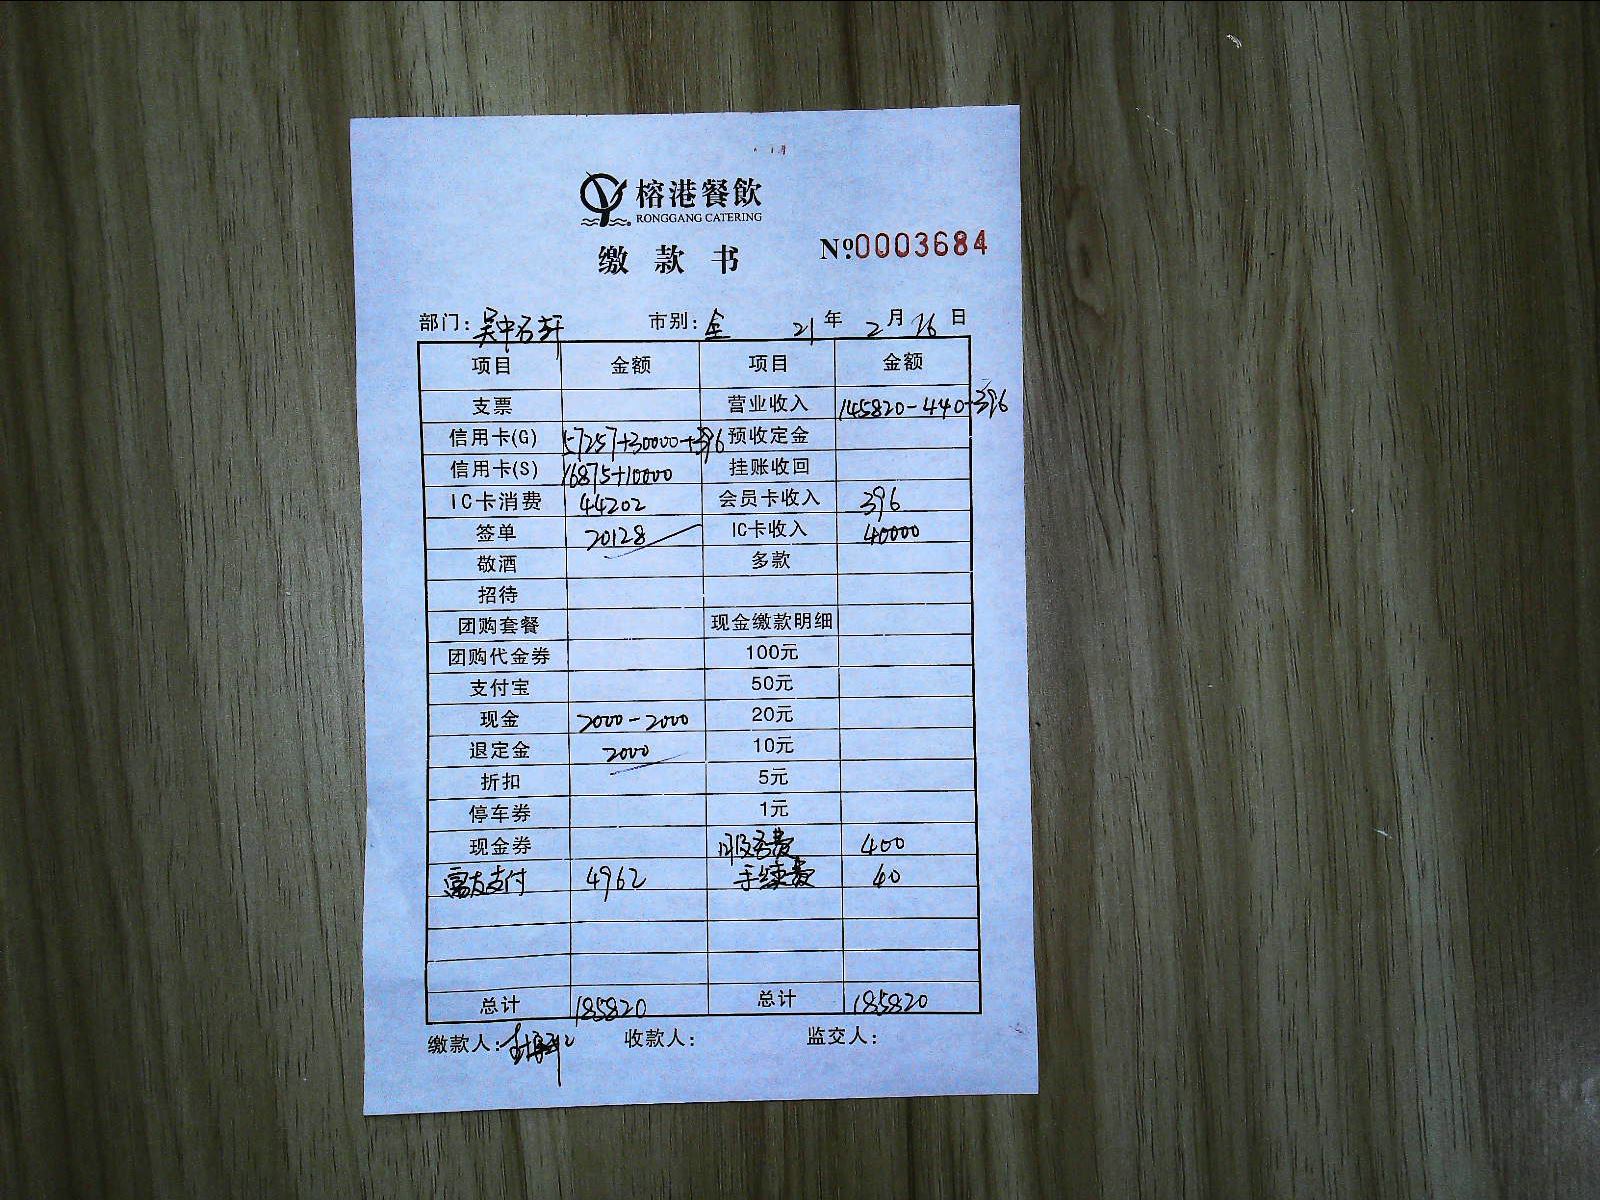 榕港餐飲
RONGGANG CATERING
缴款书 №0003684
部门：吴中石轩 市别：全 21年2月26日
项目 金额 项目 金额
支票 营业收入 145820-440-396
信用卡(G) 57257+30000+396 预收定金
信用卡(S) 16875+10000 挂账收回
IC卡消费 44202 会员卡收入 396
签单 20128 IC卡收入 40000
敬酒 多款
招待
团购套餐 现金缴款明细
团购代金券 100元
支付宝 50元
现金 2000-2000 20元
退定金 2000 10元
折扣 5元
停车券 1元
现金券 服务费 400
富友支付 4962 手续费 40
总计 185820 总计 185820
缴款人： 收款人： 监交人：